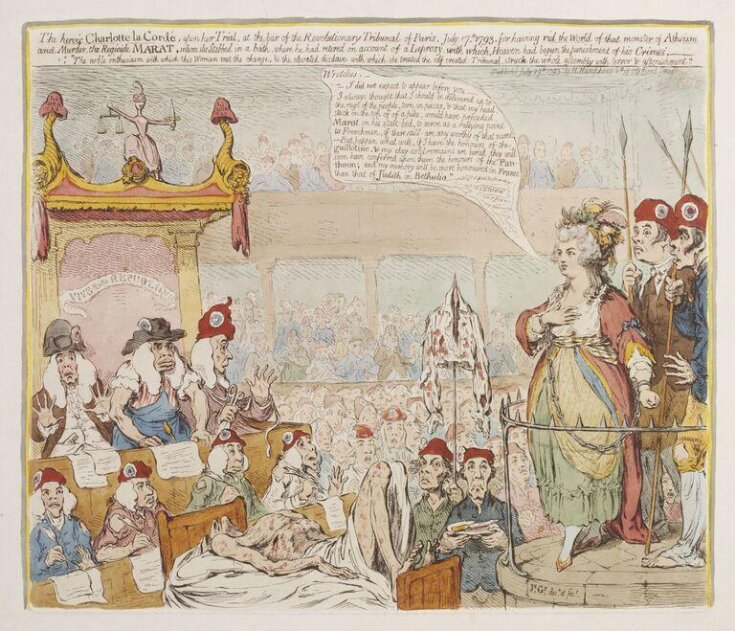 The heroic Charlotte la Cordé, upon her Trial, at the bar of the Revolutionary Tribunal of Paris, July 17th 1793, for having rid the World of that monster of Atheism
and Murder, the Regicide MARAT, whom she Stabbed in a bath, where he had retired on account of a Leprosy, with which, Heaven had begun the punishment of his Crimes.
"The noble enthusiasm with which this Woman met the charge, & the elevated disdain with which she treated the self created Tribunal, struck the whole assembly with terror & astonishment."
Publish'd July 29th 1793, by H. Humphrey
Wretches,
I did not expect to appear before you
I always thought that I should be delivered up to
the rage of the people, torn in pieces, & that my head
stuck on the top of a pike, would have preceded
Marat on his state bed, to serve as a rallying point
to Frenchmen, if there still are any worthy of that name.
But happen what will, if I have the honours of the
guillotine, & my clay cold remains are buried, they will
soon have conferred upon them the honours of the Pan-
theon; and my memory will be more honoured in France
than that of Judith in Bethulia.
VIVE la REPUBLIQUE
Js. Gy. des.t et fect.